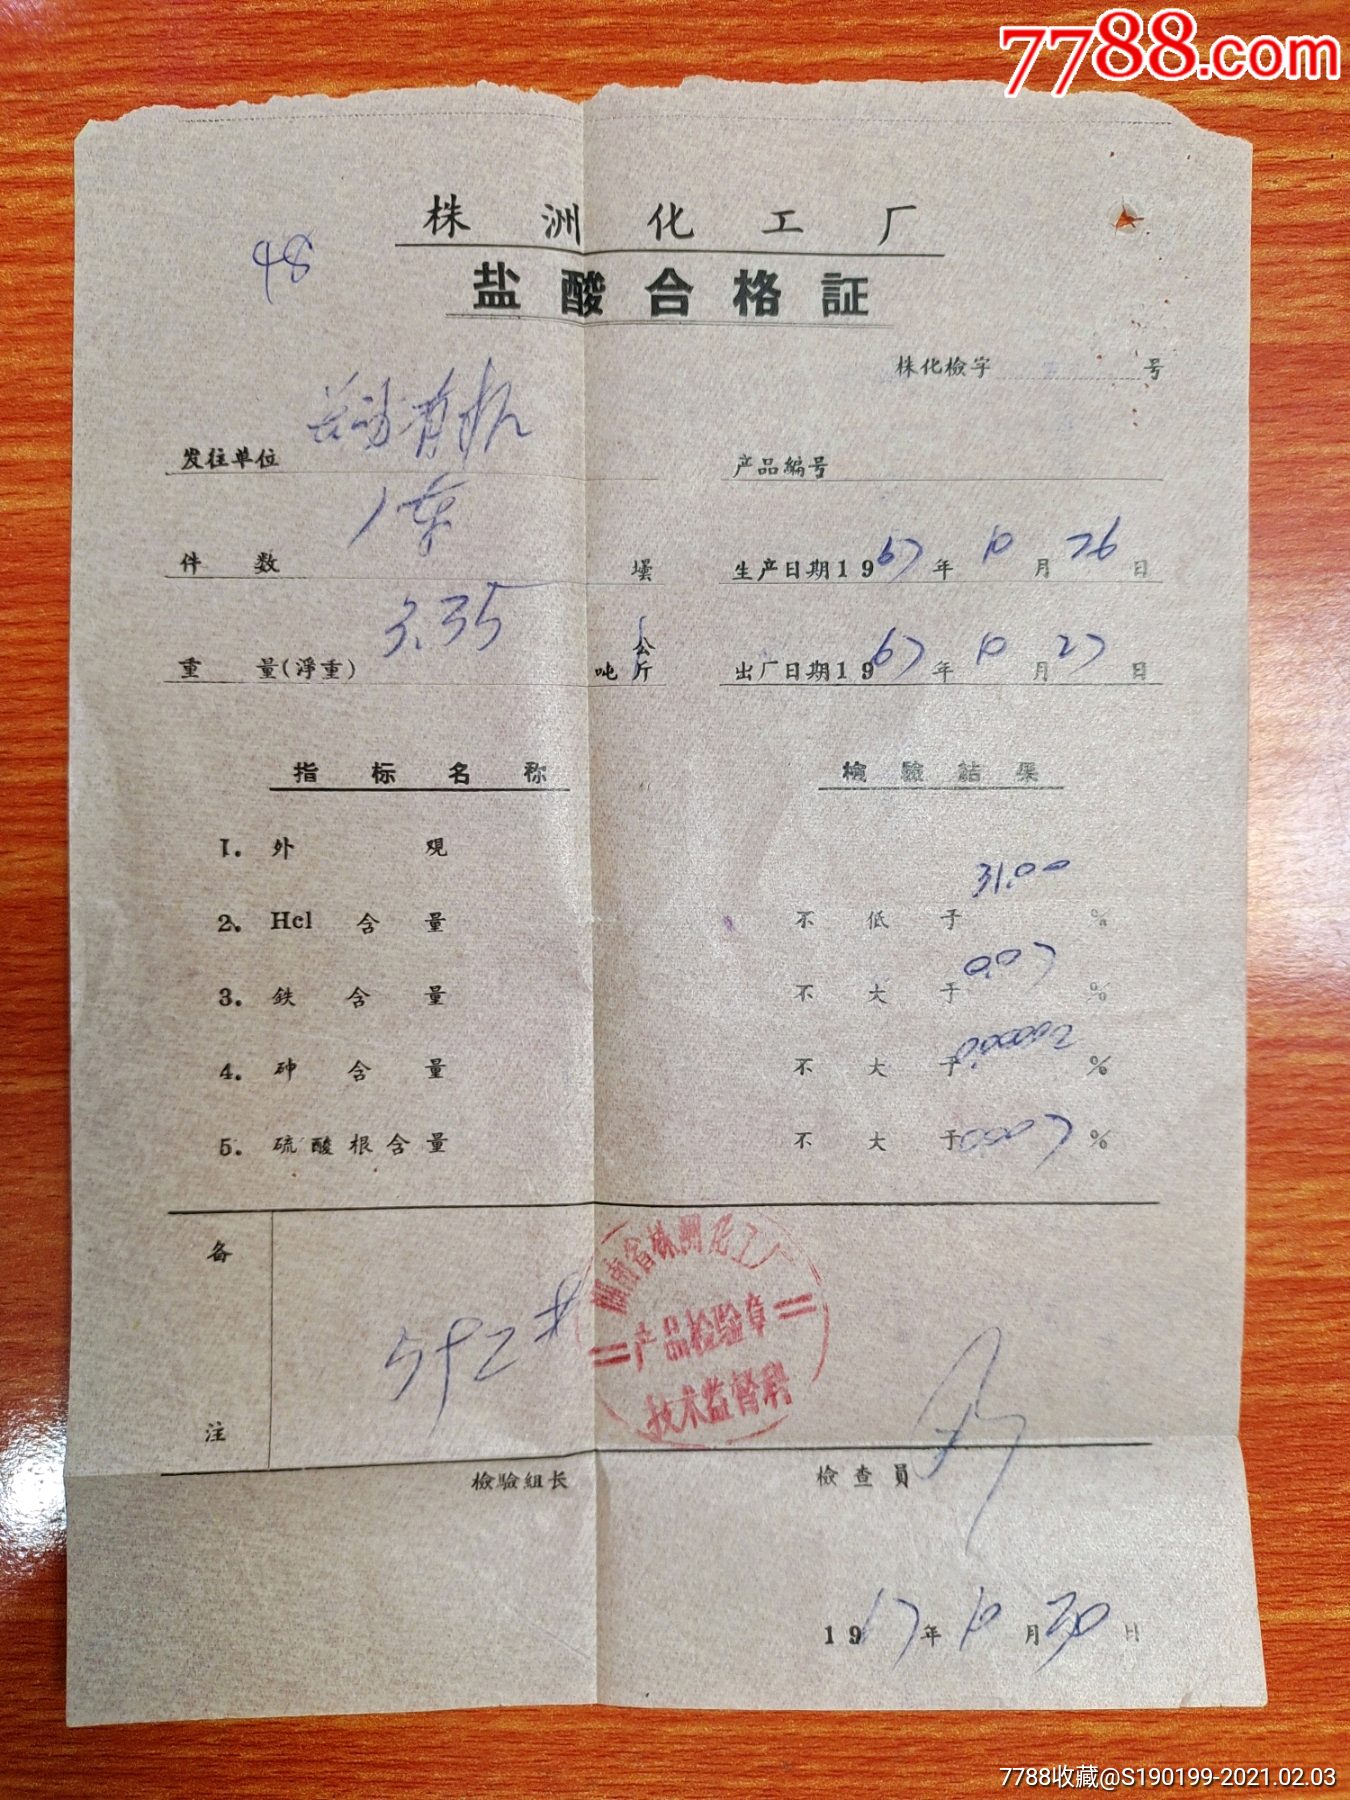 7788.com
株洲化工厂
48
盐酸合格証
株化檢字 号
发往单位 长沙有机 产品編号
件数 1车 罎 生产日期1967年10月26日
重量(淨重) 3.35 吨 公斤 出厂日期1967年10月27日
指标名称 檢驗結果
1. 外观
2. Hcl含量 不低于31.00%
3. 鉄含量 不大于0.07%
4. 砷含量 不大于0.00002%
5. 硫酸根含量 不大于0.007%
备注
湖南省株洲化工厂
产品检验章
技术监督科
檢驗組长 檢查員
1967年10月30日
7788收藏@S190199-2021.02.03